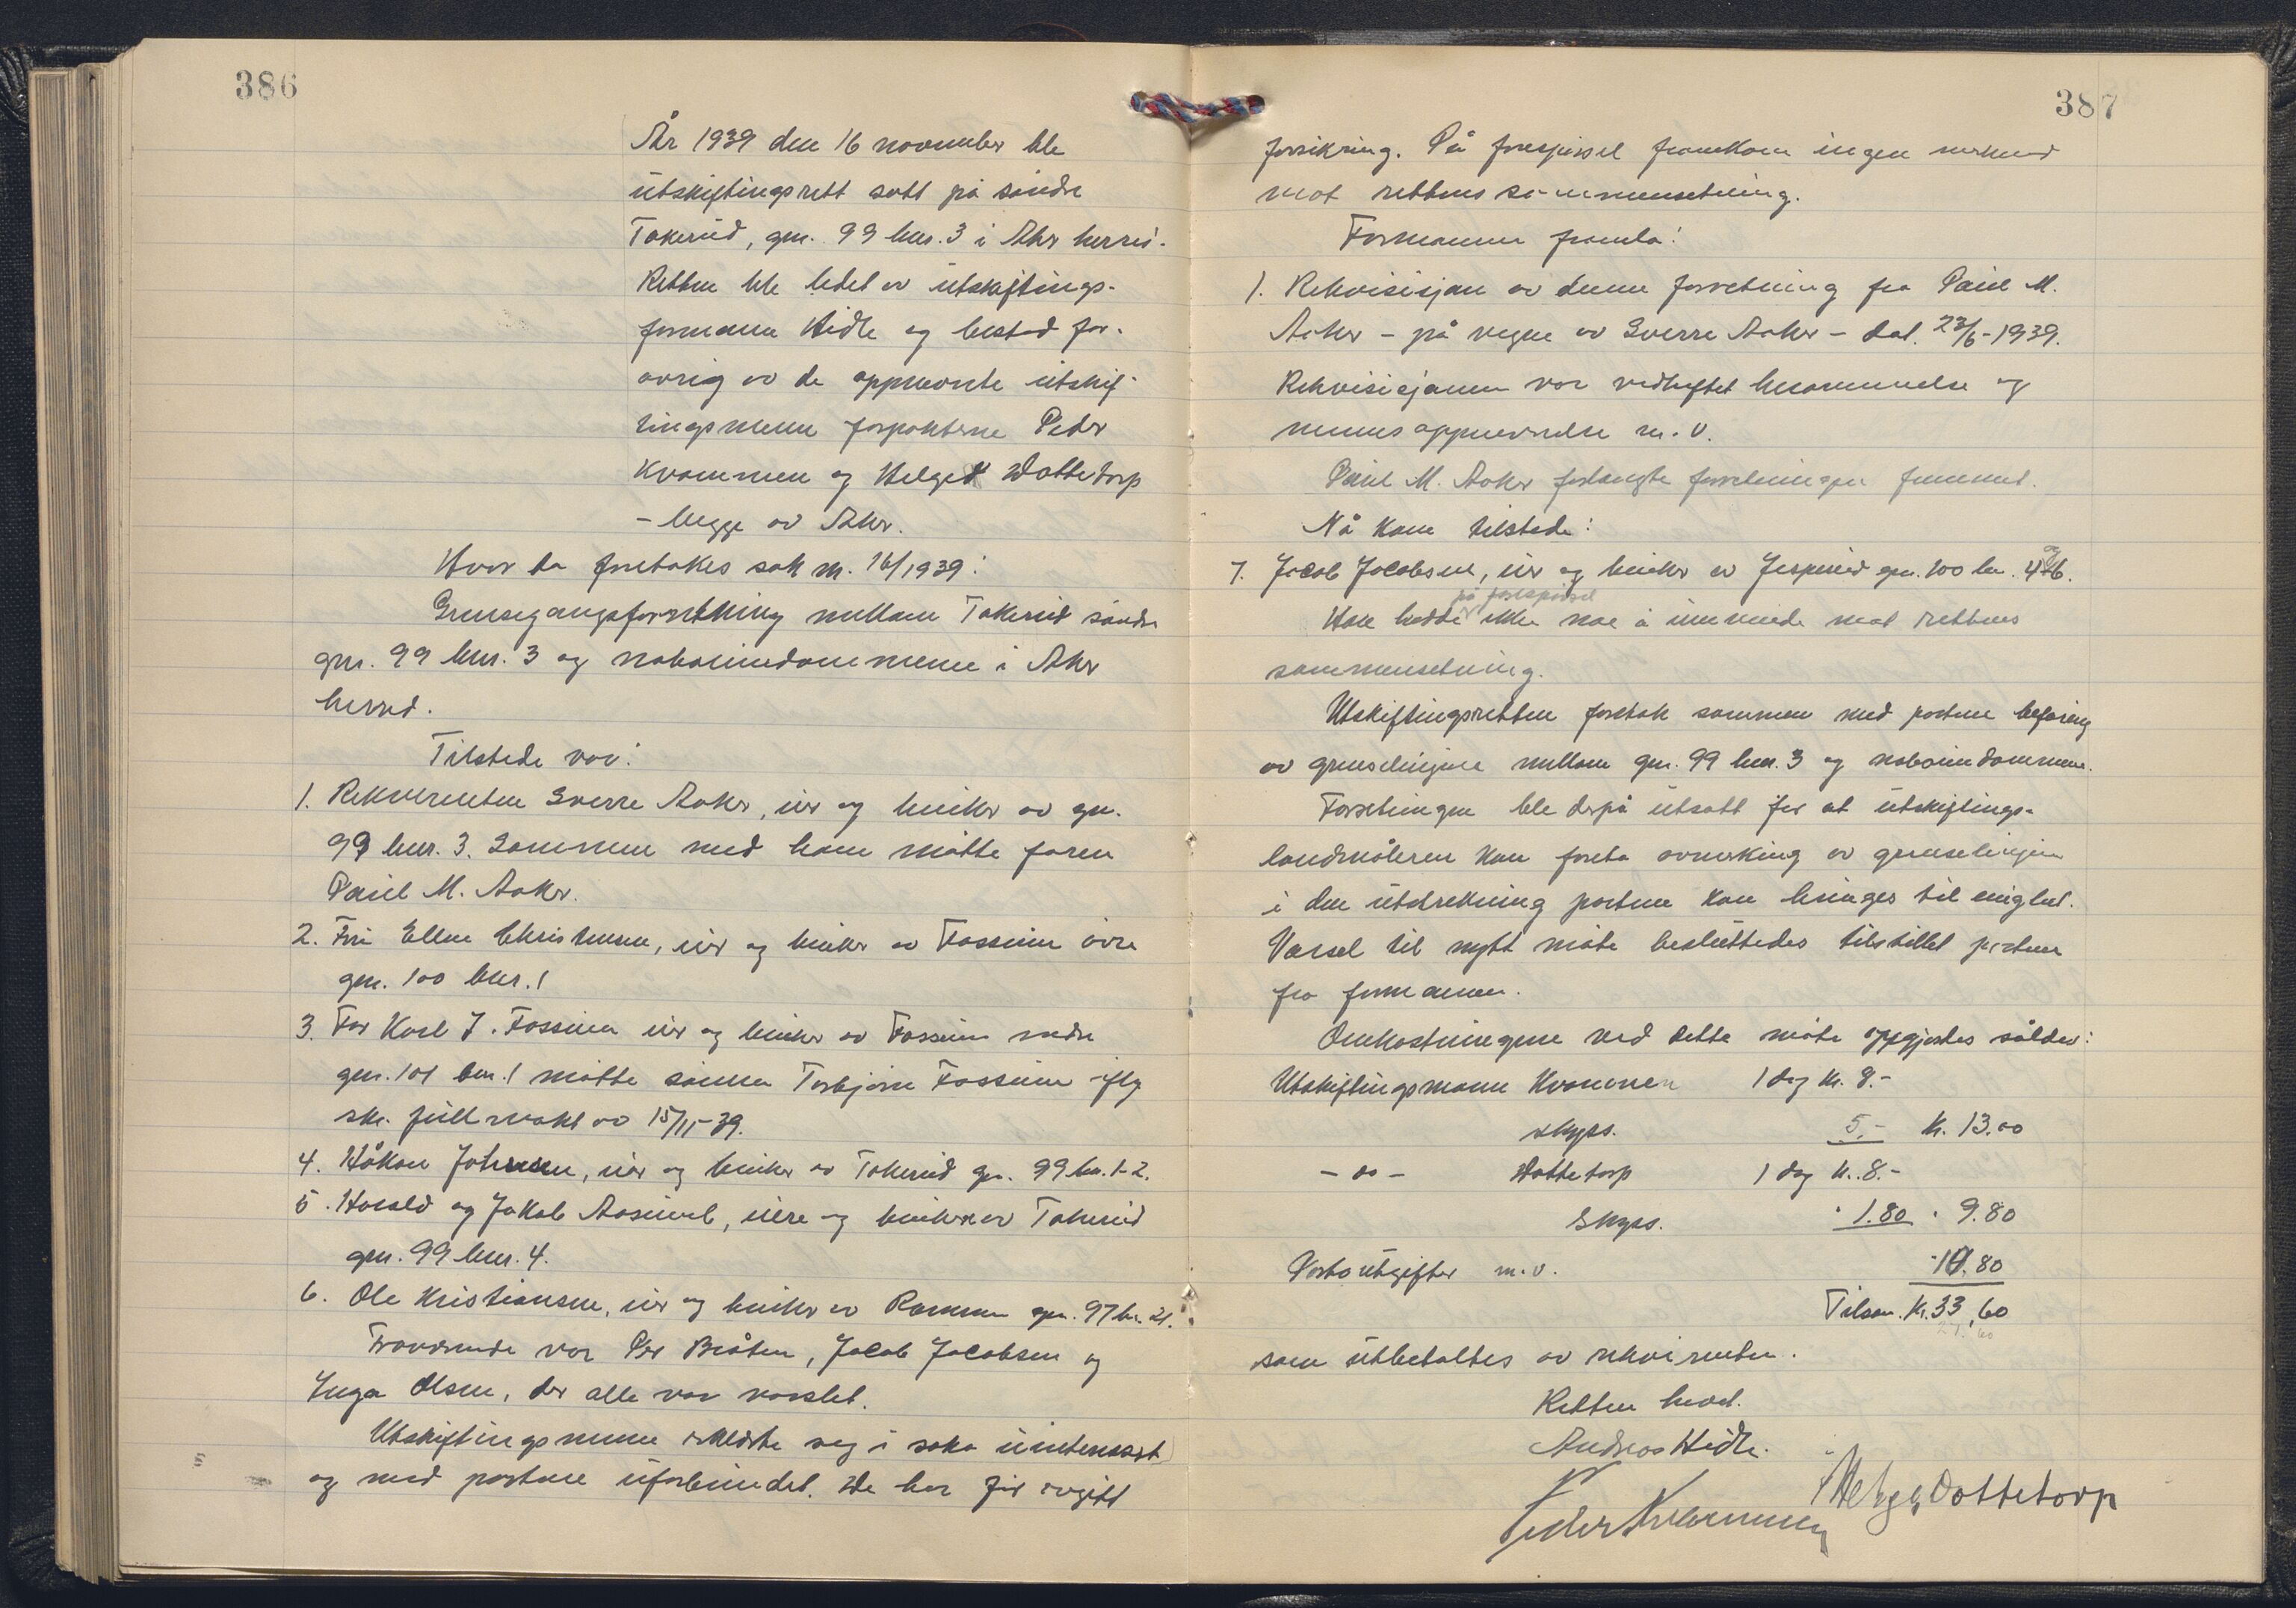 386
År 1939 den 16 november ble
utskiftingsrett satt på søndre
Takerud, gnr. 99 bnr. 3 i Aker herred.
Retten ble ledet av utskiftings-
formann Hidle og bestod for-
øvrig av de oppnevnte utskif-
tingsmenn forpakterne Peder
Kvammen og Helge Dottetorp
- begge av Aker.
Hvor da foretokes sak nr. 16/1939:
Grensegangsforretning mellem Takerud søndre
gnr. 99 bnr. 3 og naboeiendommene i Aker
herred.
Tilstede var:
1. Rekvirenten Sverre Aaker, eier og bruker av gnr.
99 bnr. 3. Sammen med ham møtte faren
Paul M. Aaker.
2. Fru Ellen Christensen, eier og bruker av Fossum øvre
gnr. 100 bnr. 1
3. For Karl J. Fossum eier og bruker av Fossum nedre
gnr. 101 bnr. 1 møtte sønnen Torbjørn Fossum iflg
skr. fullmakt av 15/11-39.
4. Håkon Johnsen, eier og bruker av Takerud gnr. 99 bnr. 1-2.
5. Harald og Jakob Aasmul, eiere og brukere av Takerud
gnr. 99 bnr. 4.
6. Ole Kristiansen, eier og bruker av Rammen gnr. 97 bnr. 21.
Fraværende var Per Bråten, Jacob Jacobsen og
Inga Olsen, der alle var varslet.
Utskiftingsmenn erklærte seg i saka uinteressert
og med partene uforbundet. De har før avgitt
387
forsikring. På forespørsel framkom ingen merknad
mot rettens sammensetning.
Formannen framla:
1. Rekvisisjon av denne forretning fra Paul M.
Aaker - på vegne av Sverre Aaker - dat. 23/6-1939.
Rekvisisjonen var vedheftet berammelse og
mennsoppnevnelse m.v.
Paul M. Aaker forlangte forretningen fremmet.
Nå kom tilstede:
7. Jacob Jacobsen, eier og bruker av Jesperud gnr. 100 bnr. 4 og 6.
på forespørsel
Han hadde ikke noe å innvende mot rettens
sammensetning.
Utskiftingsretten foretok sammen med partene befaring
av grenselinjene mellem gnr. 99 bnr. 3 og naboeiendommene.
Forretningen ble derpå utsatt for at utskiftings-
landmåleren kan foreta avmerking av grenselinjen
i den utstrekning partene kan bringes til enighet.
Varsel til nytt møte besluttedes tilstillet partene
fra formannen.
Omkostningene ved dette møte oppgjordes således:
Utskiftingsmann Kvammen 1 dag kr. 8.-
skyss. 5.- kr. 13.00
- do - Dottetorp 1 dag kr. 8.-
Skyss. " 1.80 " 9.80
Portoutgifter m.v. " 10.80
Tilsam. kr. 33,60
som utbetaltes av rekvirenten.
Retten hevet.
Andreas Hidle.
Peder Kvammen
Helge Dottetorp